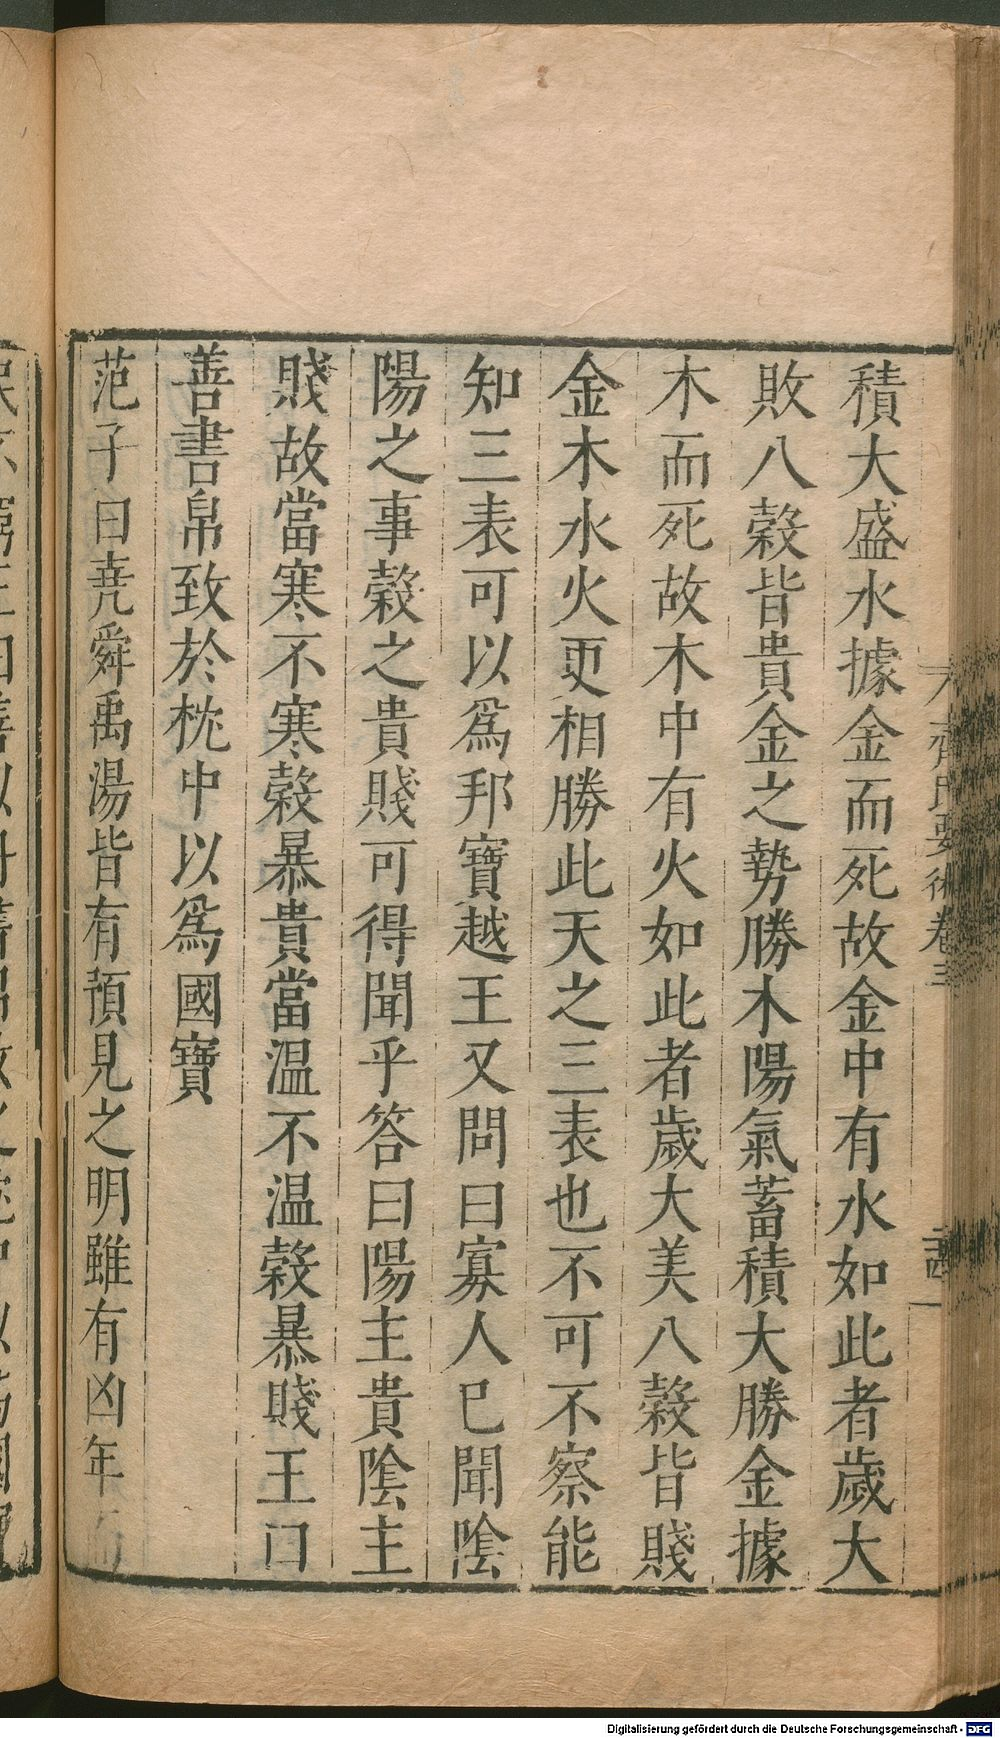 積大盛水據金而死故金中有水如此者歲大
敗八穀皆貴金之勢勝木陽氣蓄積大勝金據
木而死故木中有火如此者歲大美八穀皆賤
金木水火更相勝此天之三表也不可不察能
知三表可以爲邦寶越王又問曰寡人已聞陰
陽之事穀之貴賤可得聞乎答曰陽主貴陰主
賤故當寒不寒穀暴貴當温不温穀暴賤王曰
善書帛致於枕中以爲國寶
范子曰堯舜禹湯皆有預見之明雖有凶年而
齊民要術卷三
Digitalisierung gefördert durch die Deutsche Forschungsgemeinschaft - DFG